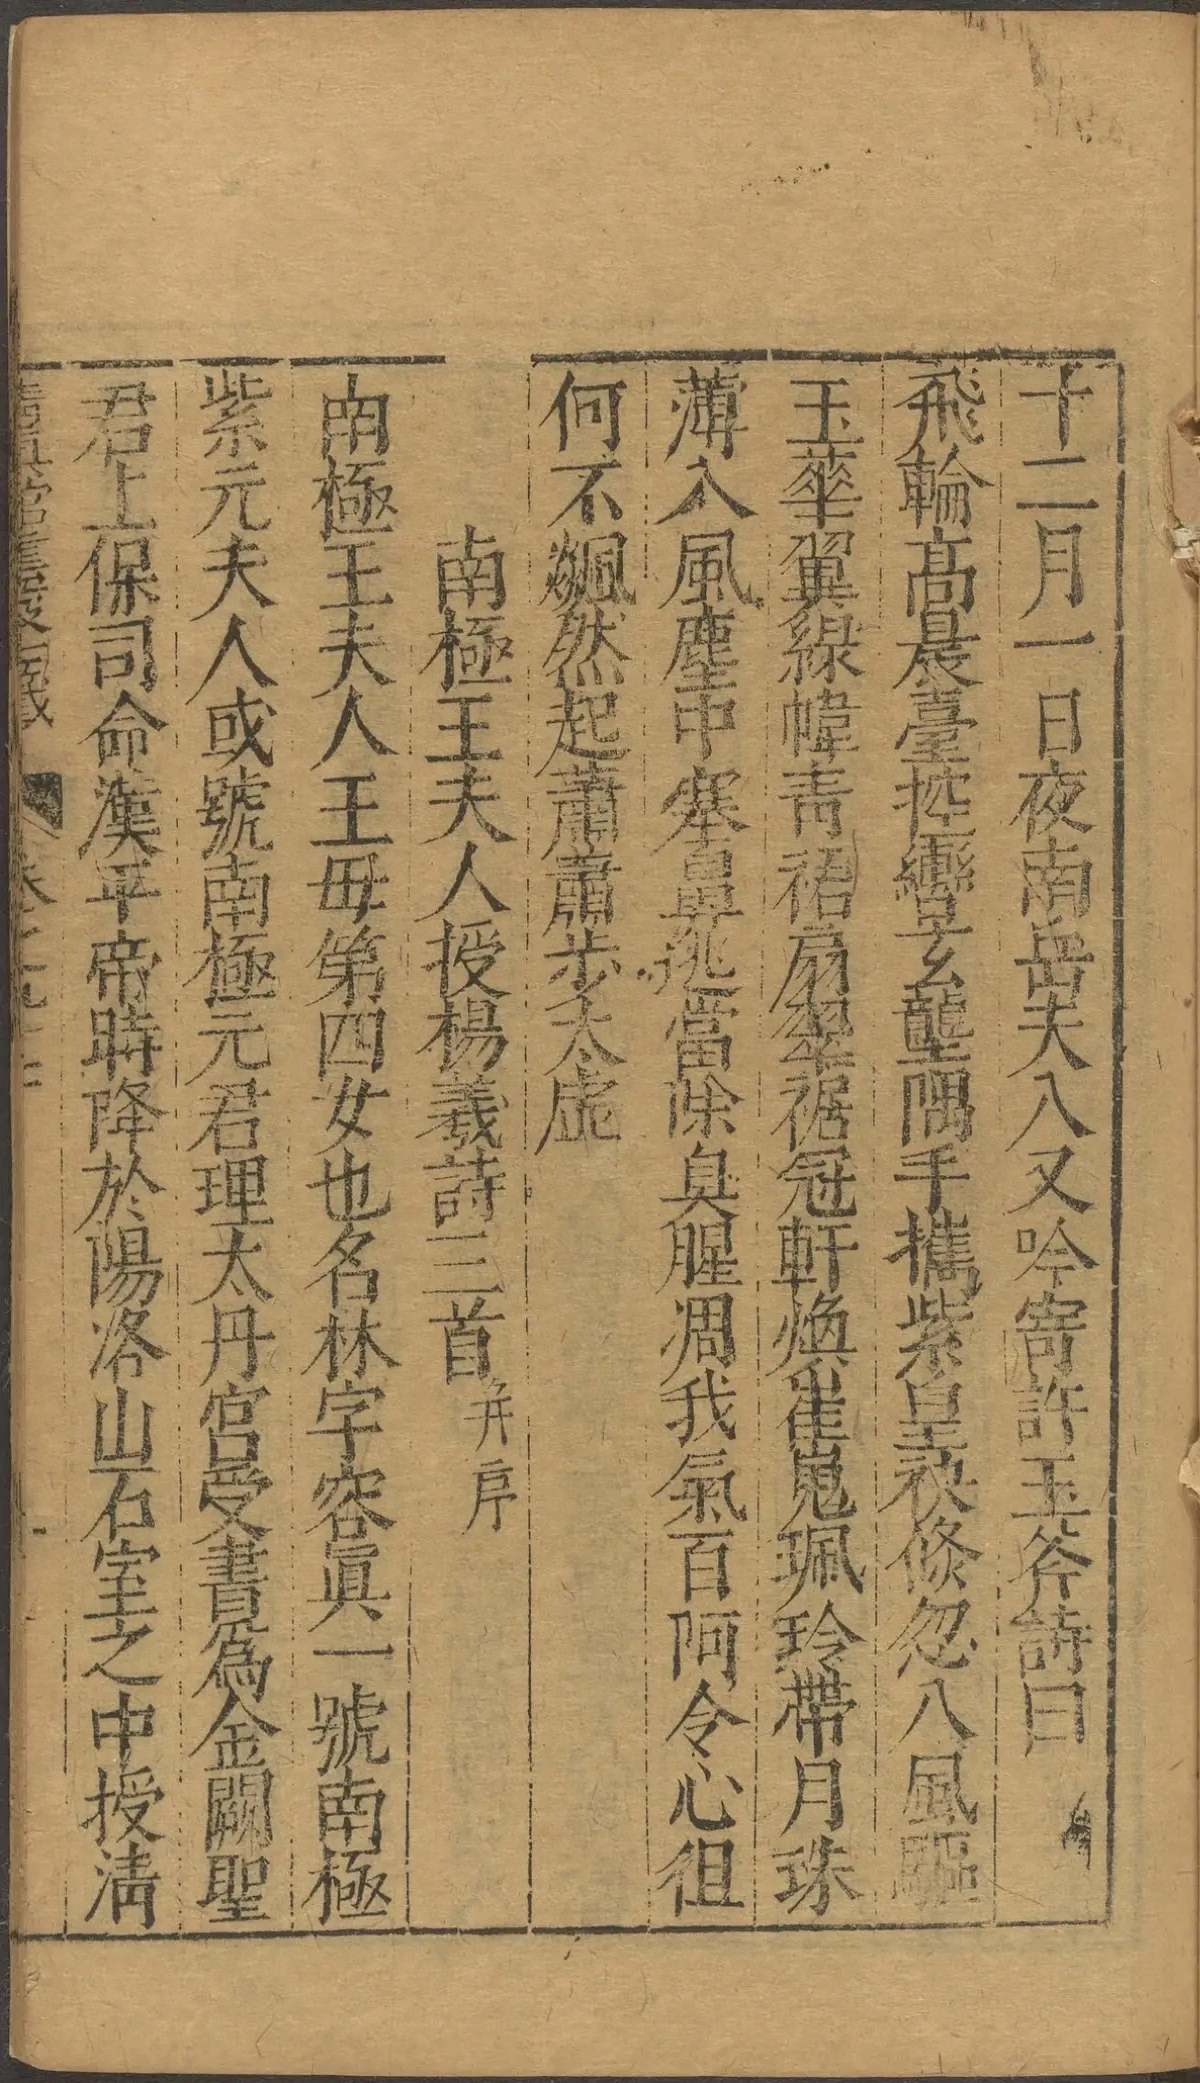 十二月一日夜南岳夫人又吟寄許玉斧詩曰
飛輪高晨臺控轡玄壟隅手攜紫皇袂倏忽八風驅
玉華翼綠幃青裙扇翠裾冠軒煥崔嵬珮玲帶月珠
薄入風塵中塞鼻逃當除臭腥凋我氣百阿令心徂
何不飊然起蕭蕭步太虛
南極王夫人授楊羲詩三首并序
南極王夫人王母第四女也名林字容眞一號南極
紫元夫人或號南極元君理太丹宮受書為金闕聖
君上保司命漢平帝時降於陽洛山石室之中授清